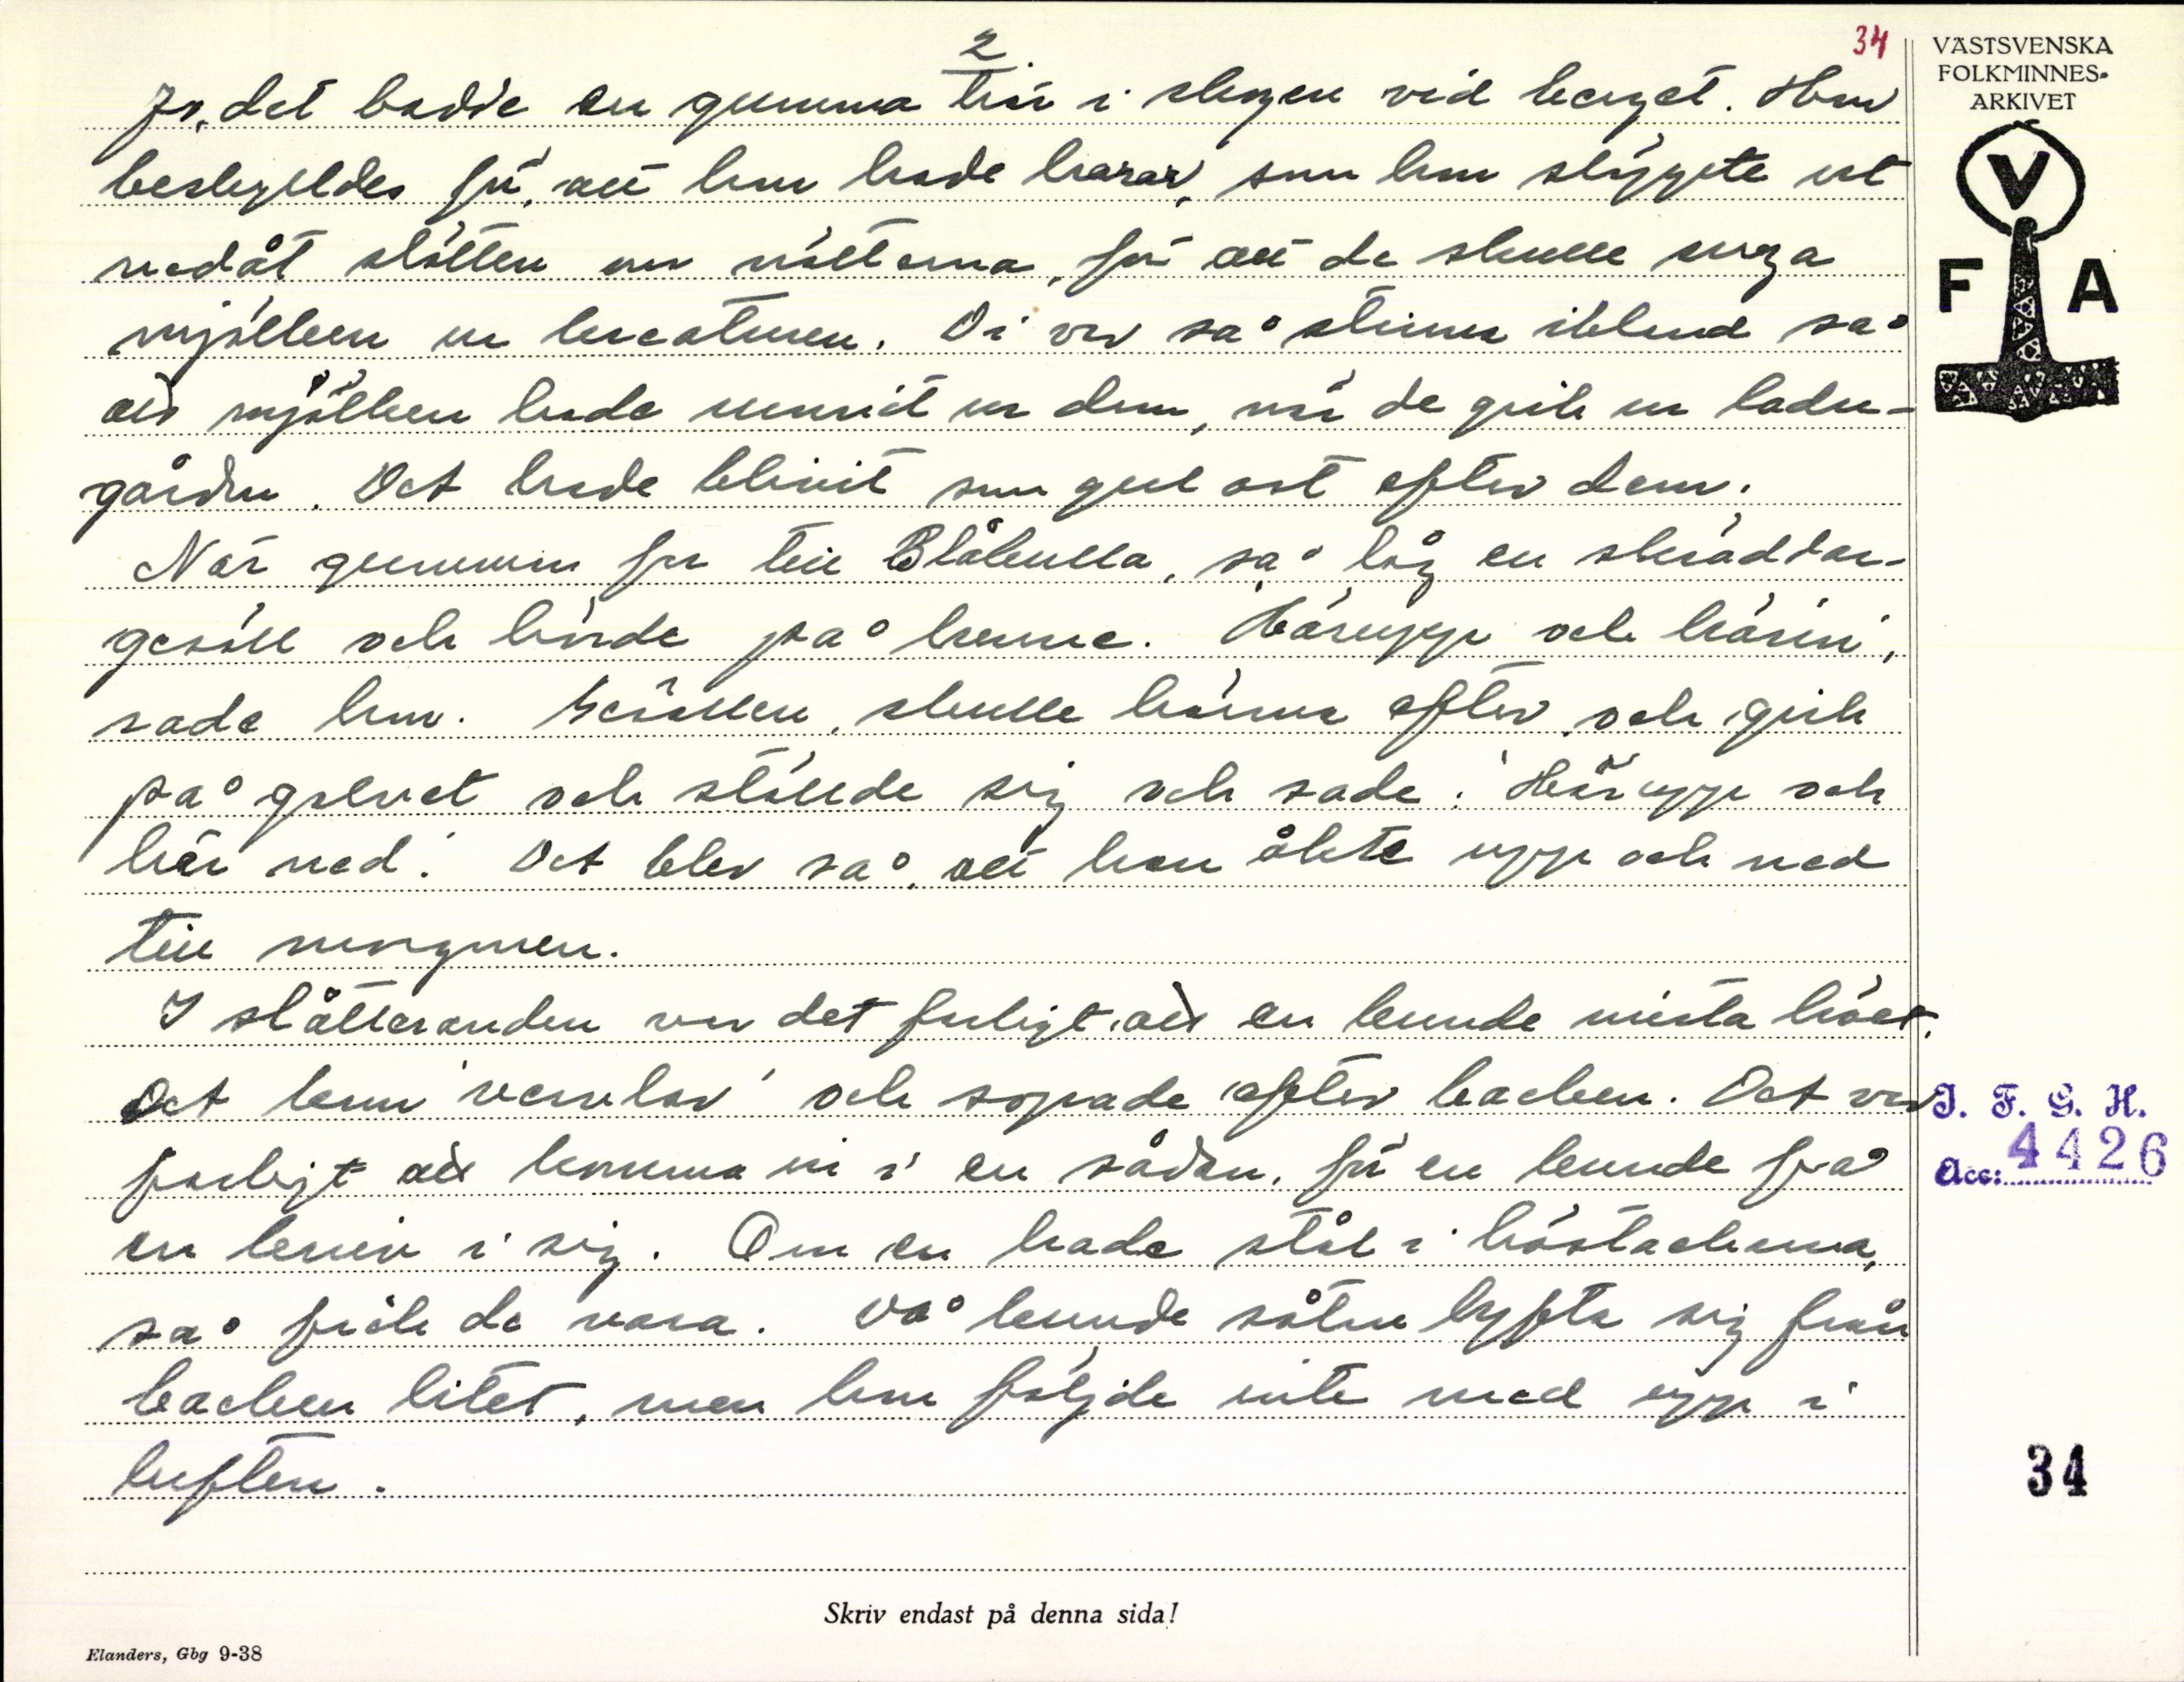 2
34
VÄSTSVENSKA
FOLKMINNES-
ARKIVET
V
F A
Jo, det bodde en gumma här i skogen vid berget. Hon
beskylldes för, att hon hade harar, som hon släppte ut
nedåt slätten om nätterna, för att de skulle suga
mjölken ur kreaturen. Di var så stinna ibland så
att mjölken hade runnit ur dem, när de gick ur ladu-
gården. Det hade blivit som gul ost efter dem.
När gumman for till Blåkulla, så låg en skräddar-
gesäll och hörde på henne. "Härupp och härin",
sade hon. Gesällen skulle härma efter och gick
på golvet och ställde sig och sade: "Här upp och
här ned". Det blev så, att han åkte upp och ned
till morgonen.
I slåtteranden var det farligt, att en kunde mista höet.
Det kom "vervlar" och sopade efter backen. Det var
farligt att komma in i en sådan, för en kunde få
en kniv i sig. Om en hade stål i höstackarna,
så fick de vara. Då kunde såten lyfta sig från
backen litet, men hon följde inte med upp i
luften.
I. F. G. H.
Acc: 4426
34
Skriv endast på denna sida!
Elanders, Gbg 9-38